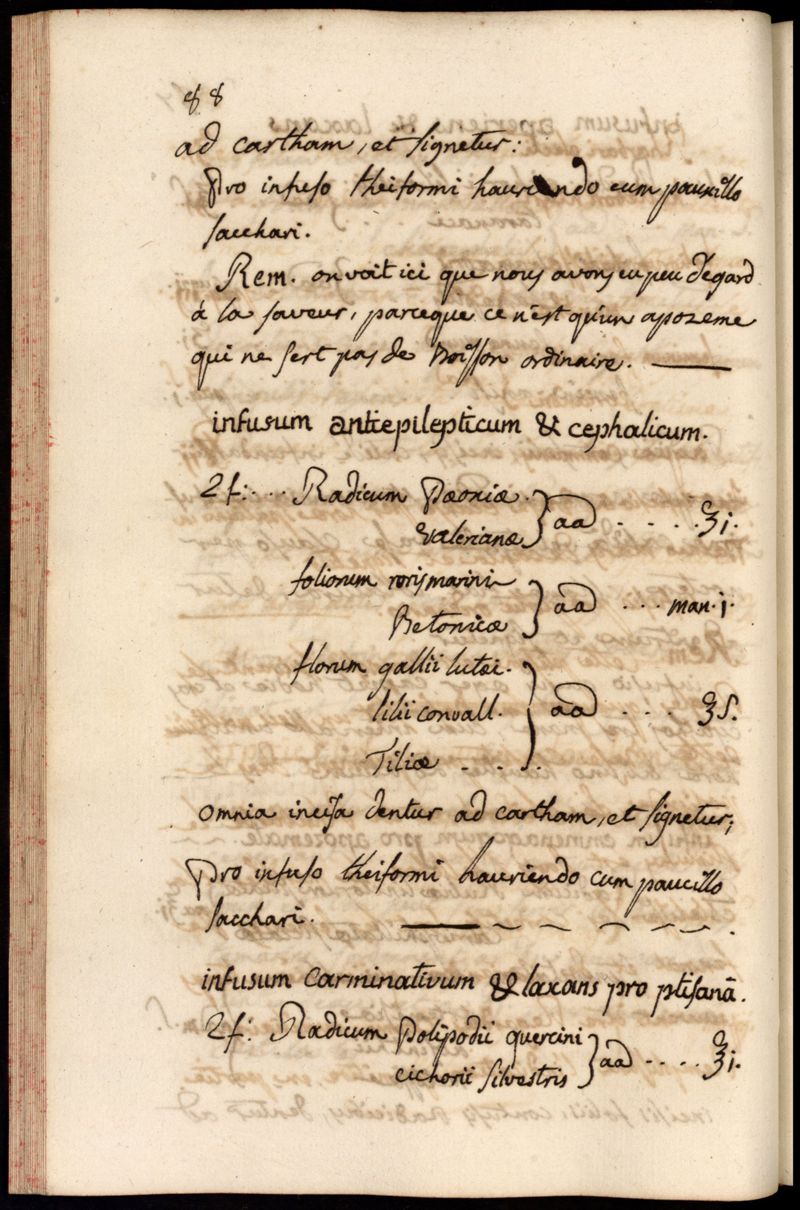 88
ad cartham, et signetur:
Pro infuso theiformi hauriendo cum pauxillo
sacchari.
Rem. on voit ici que nous avons eu peu d'egard
à la saveur, parceque ce n'est qu'un apozeme
qui ne sert pas de boisson ordinaire. ——
infusum antiepilepticum & cephalicum.
♃: ... Radicum Pæoniæ
Valerianæ } aa ..... ℥j.
foliorum rorismarini
Betonicæ } aa ... man. j.
florum gallii lutei.
lilii convall. } aa .... ʒS.
Tiliæ ...
omnia incisa dentur ad cartham, et signetur;
Pro infuso theiformi hauriendo cum paucillo
sacchari. ——
infusum carminativum & laxans pro ptisanā.
♃: Radicum Polipodii quercini
cichorii silvestris } aa .... ℥j.